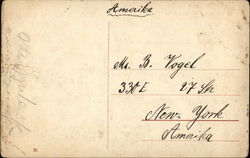 Amerika
Mr. B. Vogel
330 E 17 Str
New-York
Amerika